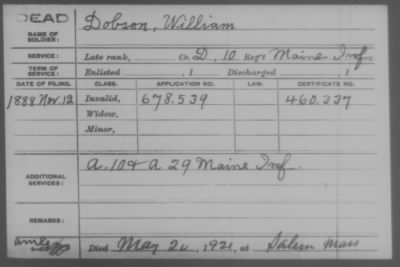 DEAD
NAME OF SOLDIER: Dobson, William
SERVICE: Late rank, Co. D, 10 Reg't Maine Inf.
TERM OF SERVICE: Enlisted , 1 Discharged , 1
DATE OF FILING. CLASS. APPLICATION NO. LAW. CERTIFICATE NO.
1888 Nov. 12 Invalid, 678.539 460.337
Widow,
Minor,
ADDITIONAL SERVICES: A. 10 & A 29 Maine Inf.
REMARKS:
Died May 1921, at Salem Mass